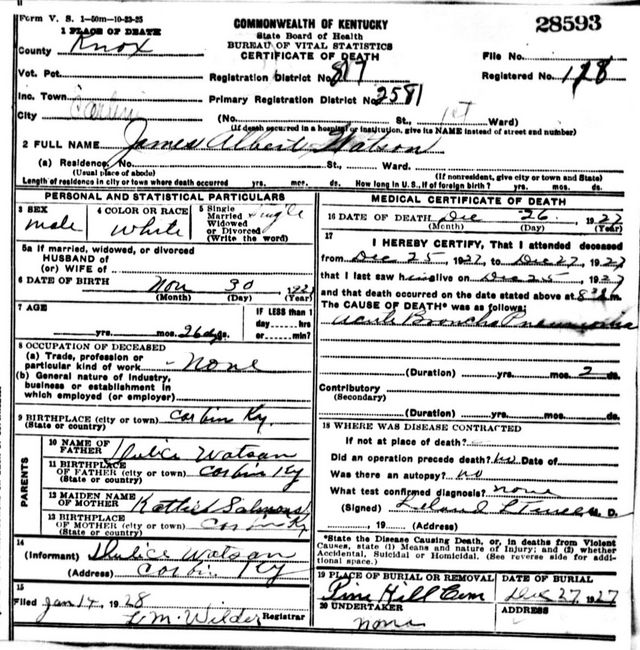 Form V. S. 1-50m-10-23-25
COMMONWEALTH OF KENTUCKY
28593
1 PLACE OF DEATH
State Board of Health
BUREAU OF VITAL STATISTICS
CERTIFICATE OF DEATH
County Knox
File No.
Vot. Pct.
Registration District No. 817
Registered No. 128
Inc. Town
Primary Registration District No. 2581
City Corbin
(No. St., 1st Ward)
(If death occurred in a hospital or institution, give its NAME instead of street and number)
2 FULL NAME James Albert Watson
(a) Residence, No. St., Ward.
(Usual place of abode) (If nonresident, give city or town and State)
Length of residence in city or town where death occurred yrs. mos. ds. How long in U. S., if of foreign birth? yrs. mos. ds.
PERSONAL AND STATISTICAL PARTICULARS
3 SEX male
4 COLOR OR RACE White
5 Single Married Widowed or Divorced (Write the word) Single
5a If married, widowed, or divorced
HUSBAND of
(or) WIFE of
6 DATE OF BIRTH Nov 30 1927
(Month) (Day) (Year)
7 AGE
IF LESS than 1
day hrs
or min?
yrs. mos. 26 dys.
8 OCCUPATION OF DECEASED
(a) Trade, profession or
particular kind of work None
(b) General nature of industry,
business or establishment in
which employed (or employer)
9 BIRTHPLACE (city or town) Corbin Ky.
(State or country)
PARENTS
10 NAME OF
FATHER Watson
11 BIRTHPLACE
OF FATHER (city or town) Corbin Ky
(State or country)
12 MAIDEN NAME
OF MOTHER
13 BIRTHPLACE
OF MOTHER (city or town) Corbin Ky
(State or country)
14
(Informant) Watson
(Address) Corbin Ky
15
Filed Jan 14, 1928
Wilder Registrar
MEDICAL CERTIFICATE OF DEATH
16 DATE OF DEATH Dec 26 1927
(Month) (Day) (Year)
17
I HEREBY CERTIFY, That I attended deceased
from Dec 25, 1927, to Dec 27, 1927
that I last saw him alive on Dec 25, 1927
and that death occurred on the date stated above at m.
The CAUSE OF DEATH* was as follows:
Acute Broncho Pneumonia
(Duration) yrs. mos. 2 ds.
Contributory
(Secondary)
(Duration) yrs. mos. ds.
18 WHERE WAS DISEASE CONTRACTED
If not at place of death?
Did an operation precede death? No Date of
Was there an autopsy? no
What test confirmed diagnosis? none
(Signed) M. D.
, 19 (Address)
*State the Disease Causing Death, or, in deaths from Violent
Causes, state (1) Means and nature of Injury; and (2) whether
Accidental, Suicidal or Homicidal. (See reverse side for addi-
tional space.)
19 PLACE OF BURIAL OR REMOVAL
Pine Hill Cem
DATE OF BURIAL
Dec 27, 1927
20 UNDERTAKER
none
ADDRESS